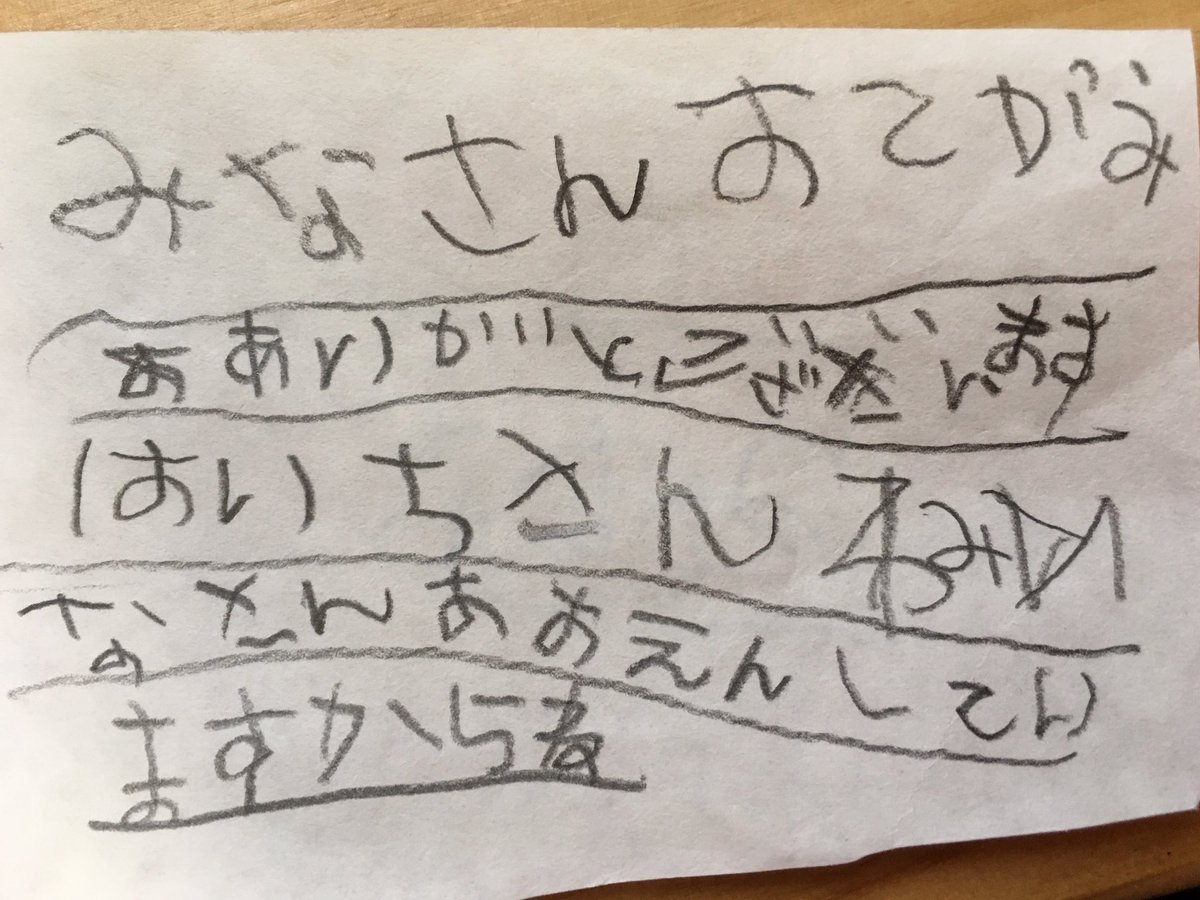 みなさんおてがみ
ありがとございます
はいちさんねみ
なさんおおえんしてい
ますからね